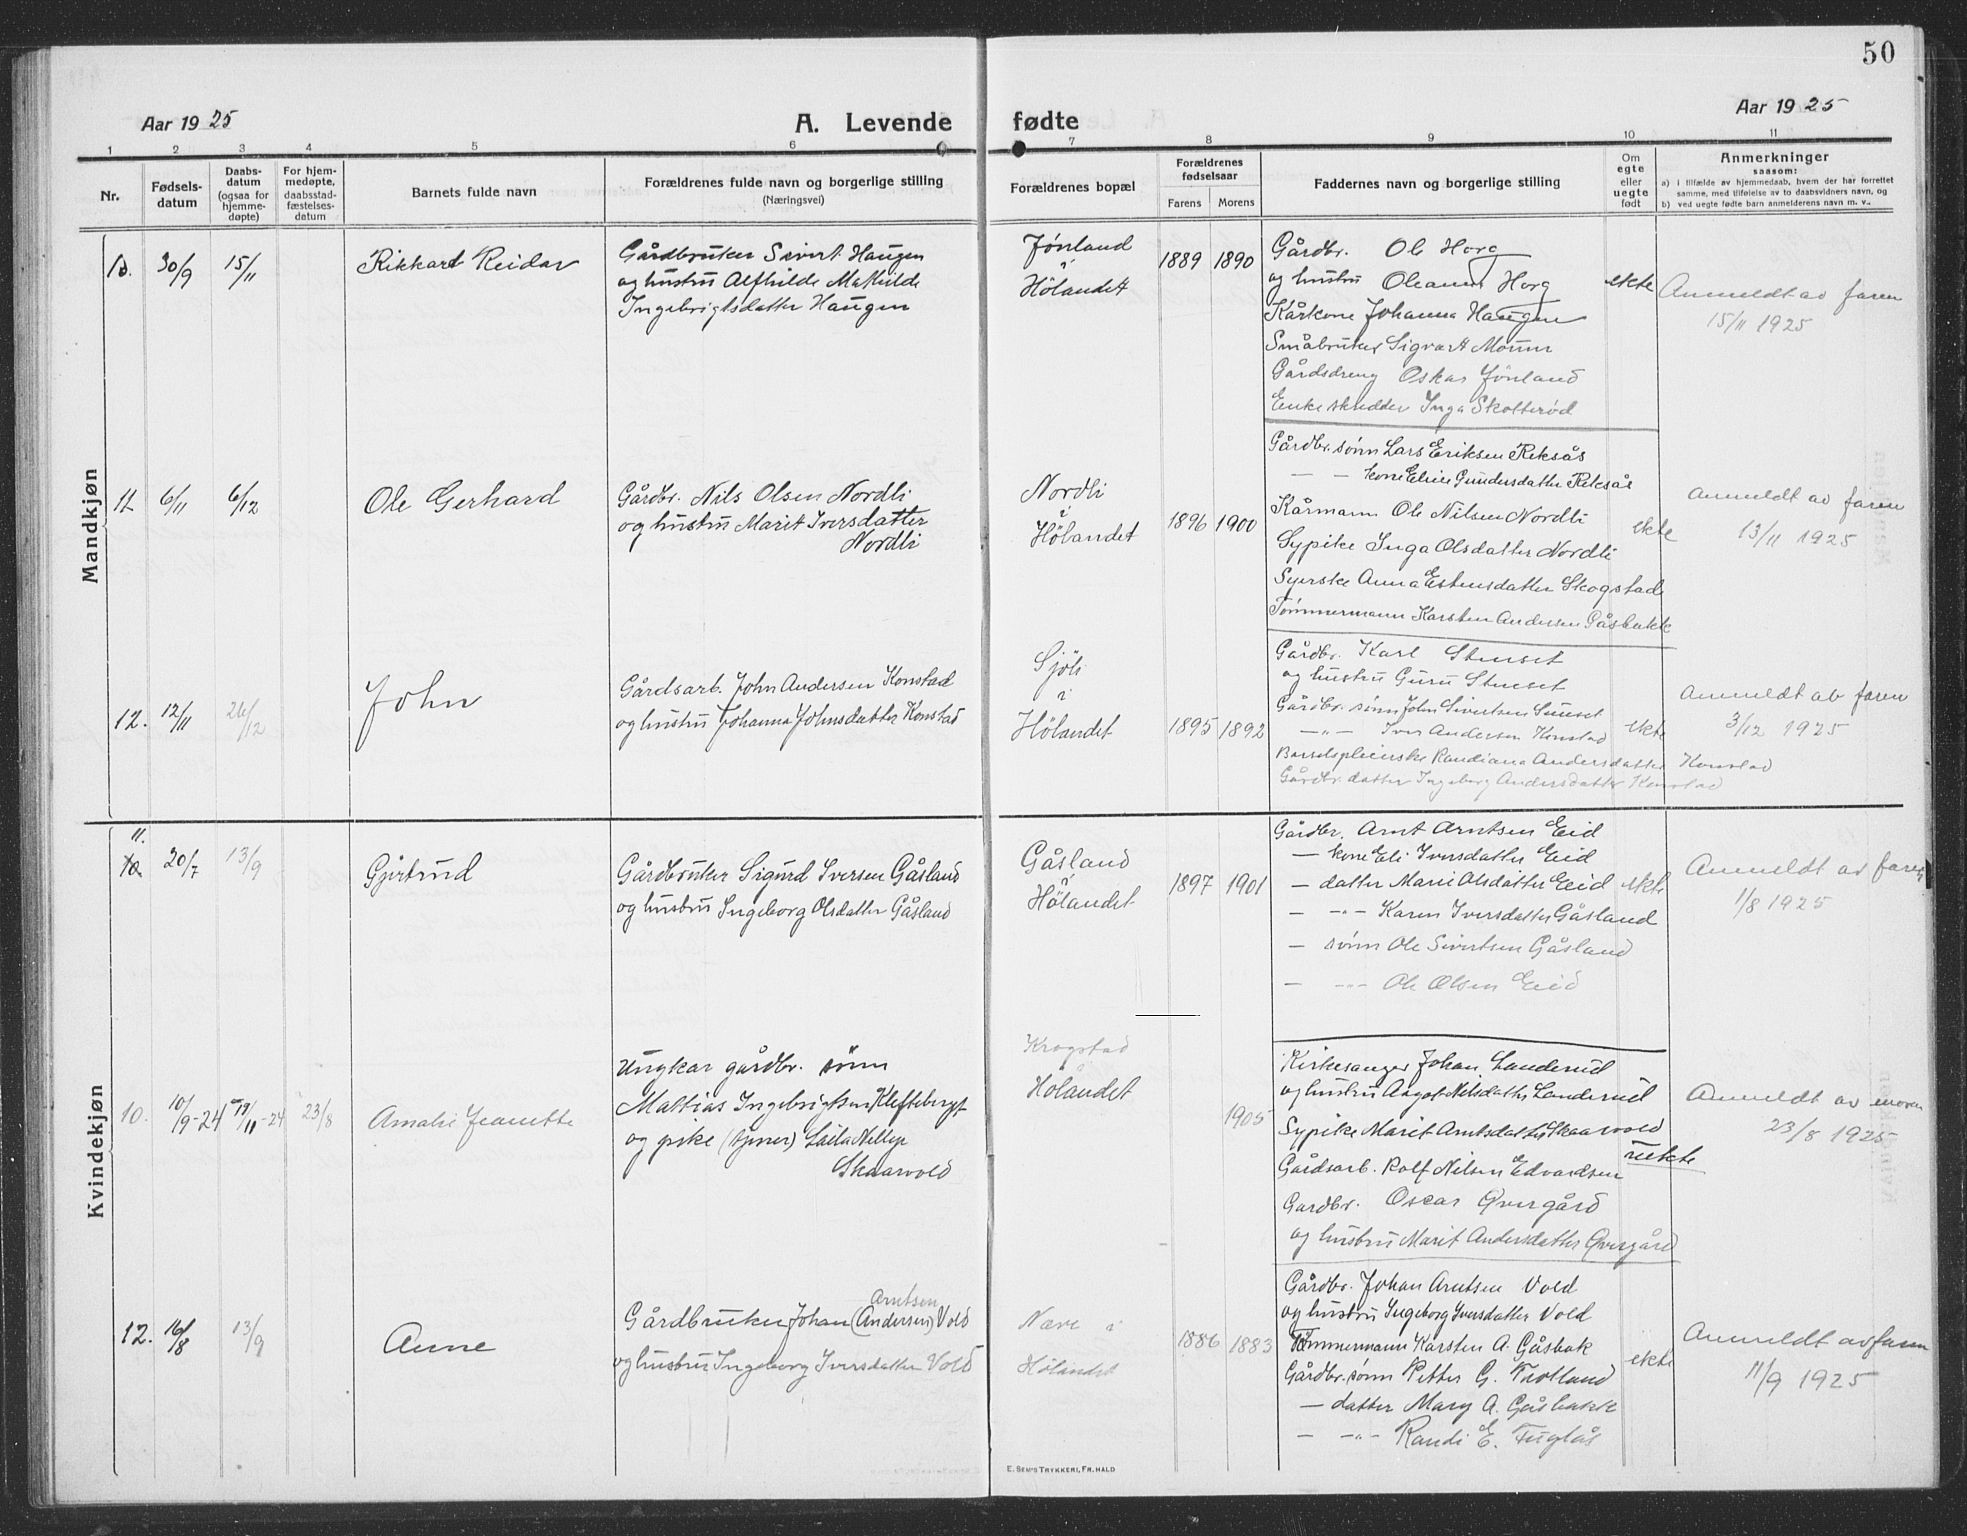 50
Aar 1925
A. Levende fødte
Aar 1925
1 2 3 4 5 6 7 8 9 10 11
Nr.
Fødsels-
datum
Daabs-
datum
(ogsaa for
hjemme-
døpte)
For hjem-
medøpte,
daabsstad-
fæstelses-
datum
Barnets fulde navn
Forældrenes fulde navn og borgerlige stilling
(Næringsvei)
Forældrenes bopæl
Forældrenes
fødselsaar
Farens Morens
Faddernes navn og borgerlige stilling
Om
egte
eller
uegte
født
Anmerkninger
saasom:
a) i tilfælde av hjemmedaab, hvem der har forrettet
samme, med tilføielse av to daabsvidners navn, og
b) ved uegte fødte barn anmelderens navn m. v..
Mandkjøn
10. 30/9 15/11
Rikkart Reidar
Gårdbruker Sivert Haugen
og hustru Alfhilde Mathilde
Ingebrigtsdatter Haugen
Jønland
i
Hølandet
1889 1890
Gårdbr. Ole Horg
og hustru Oleanna Horg
Kårkone Johanna Haugen
Småbruker Sigvart Moum
Gårdsdreng Oskar Jønland
Enke skredder Inga Skolterød
ekte
Anmeldt av faren
15/11 1925
11. 6/11 6/12
Ole Gerhard
Gårdbr. Nils Olsen Nordli
og hustru Marit Iversdatter
Nordli
Nordli
i
Hølandet
1896 1900
Gårdbr. sønn Lars Eriksen Reksås
— — kone Elin Gundersdatter Reksås
Kårmann Ole Nilsen Nordli
Sypike Inga Olsdatter Nordli
Syerske Anna Estensdatter Skogstad
Tømmermann Karsten Andersen Gåsbakk
ekte
Anmeldt av faren
13/11 1925
12. 12/11 26/12
John
Gårdsarb. John Andersen Konstad
og hustru Johanna Johnsdatter Konstad
Sjøli
i
Hølandet
1895 1892
Gårdbr. Karl Stenset
og hustru Guru Stenset
Gårdbr. sønn John Sivertsen Sunset
—"— Iver Andersen Konstad
Barselspleierske Randiana Andersdatter Konstad
Gårdbr. datter Ingeborg Andersdatter Konstad
ekte
Anmeldt av faren
3/12 1925
Kvindekjøn
11.
10. 20/7 13/9
Gjertrud
Gårdbruker Sigurd Iversen Gåsland
og hustru Ingeborg Olsdatter Gåsland
Gåsland
i
Hølandet
1897 1901
Gårdbr. Arnt Arntsen Eid
— kone Eli Iversdatter Eid
— datter Marie Olsdatter Eid
— —"— Karen Iversdatter Gåsland
— sønn Ole Sivertsen Gåsland
— —"— Ole Olsen Eid
ekte
Anmeldt av faren
1/8 1925
10. 10/9-24 19/11-24 23/8
Amalie Jeanette
Ungkar gårdbr. sønn
Mattias Ingebrigtsen Kleftebergt
og pike (tjener) Laila Nelly
Skaarvold
Krogstad
Hølandet
1905
Kirkesanger Johan Landerud
og hustru Aagot Nilsdatter Landerud
Sypike Marit Arntsdatter Skaarvold
Gårdsarb. Rolf Nilsen Edvardsen
Gardbr. Oscar Qvergård
og hustru Marit Andersdatter Qvergård
uekte
Anmeldt av moren
23/8 1925
12. 16/8 13/9
Anne
Arntsen
Gårdbruker Johan (Andersen) Vold
og hustru Ingeborg Iversdatter Vold
Nære i
Hølandet
1886 1883
Gårdbr. Johan Arntsen Vold
og hustru Ingeborg Iversdatter Vold
Tømmermann Karsten A. Gåsbak
Gårdbr. sønn Petter G. Frotland
— datter Mary A. Gåsbakk
— —"— Randi E. Fuglås
ekte
Anmeldt av faren
11/9 1925
E. Sem's Trykkeri, Fr.hald